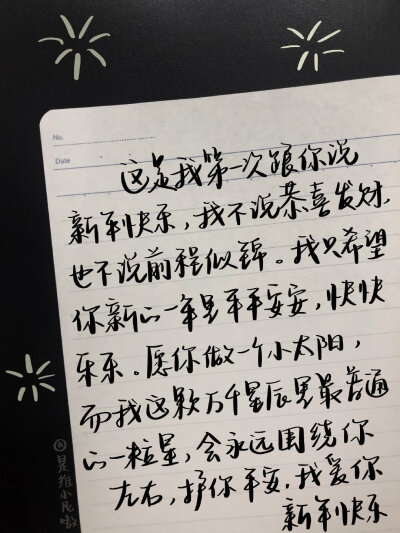 No.
Date
这是我第一次跟你说
新年快乐，我不说恭喜发财，
也不说前程似锦。我只希望
你新的一年里平平安安，快快
乐乐。愿你做一个小太阳，
而我这颗万千星辰里最普通
的一粒星，会永远围绕你
左右，护你平安，我爱你
新年快乐
@是维小尾嗷